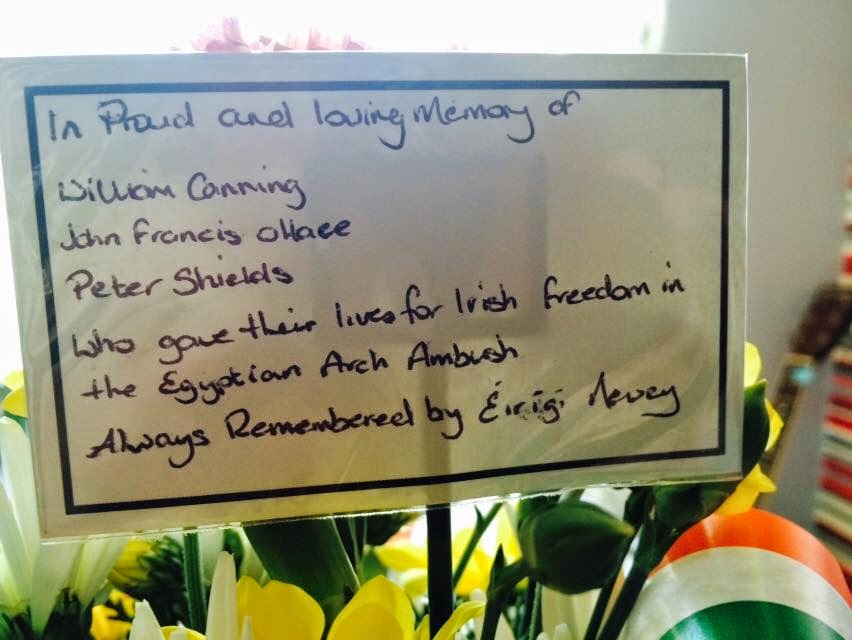 In Proud and loving Memory of
William Canning
John Francis oHare
Peter Shields
Who gave their lives for Irish freedom in
the Egyptian Arch Ambush
Always Remembered by Éirígí Newry